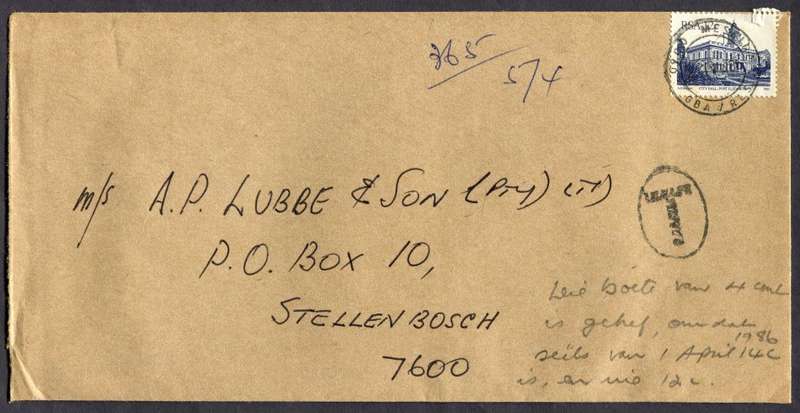 365
5/4
RSA 12c
CITY HALL, PORT ELIZABETH
GBA / RES
m/s A.P. LUBBE & SON (PTY) LTD
P.O. BOX 10,
STELLENBOSCH
7600
boete van 4 cent
is gehef, omdat
1986
seëls van 1 April 14c
is, en nie 12c.